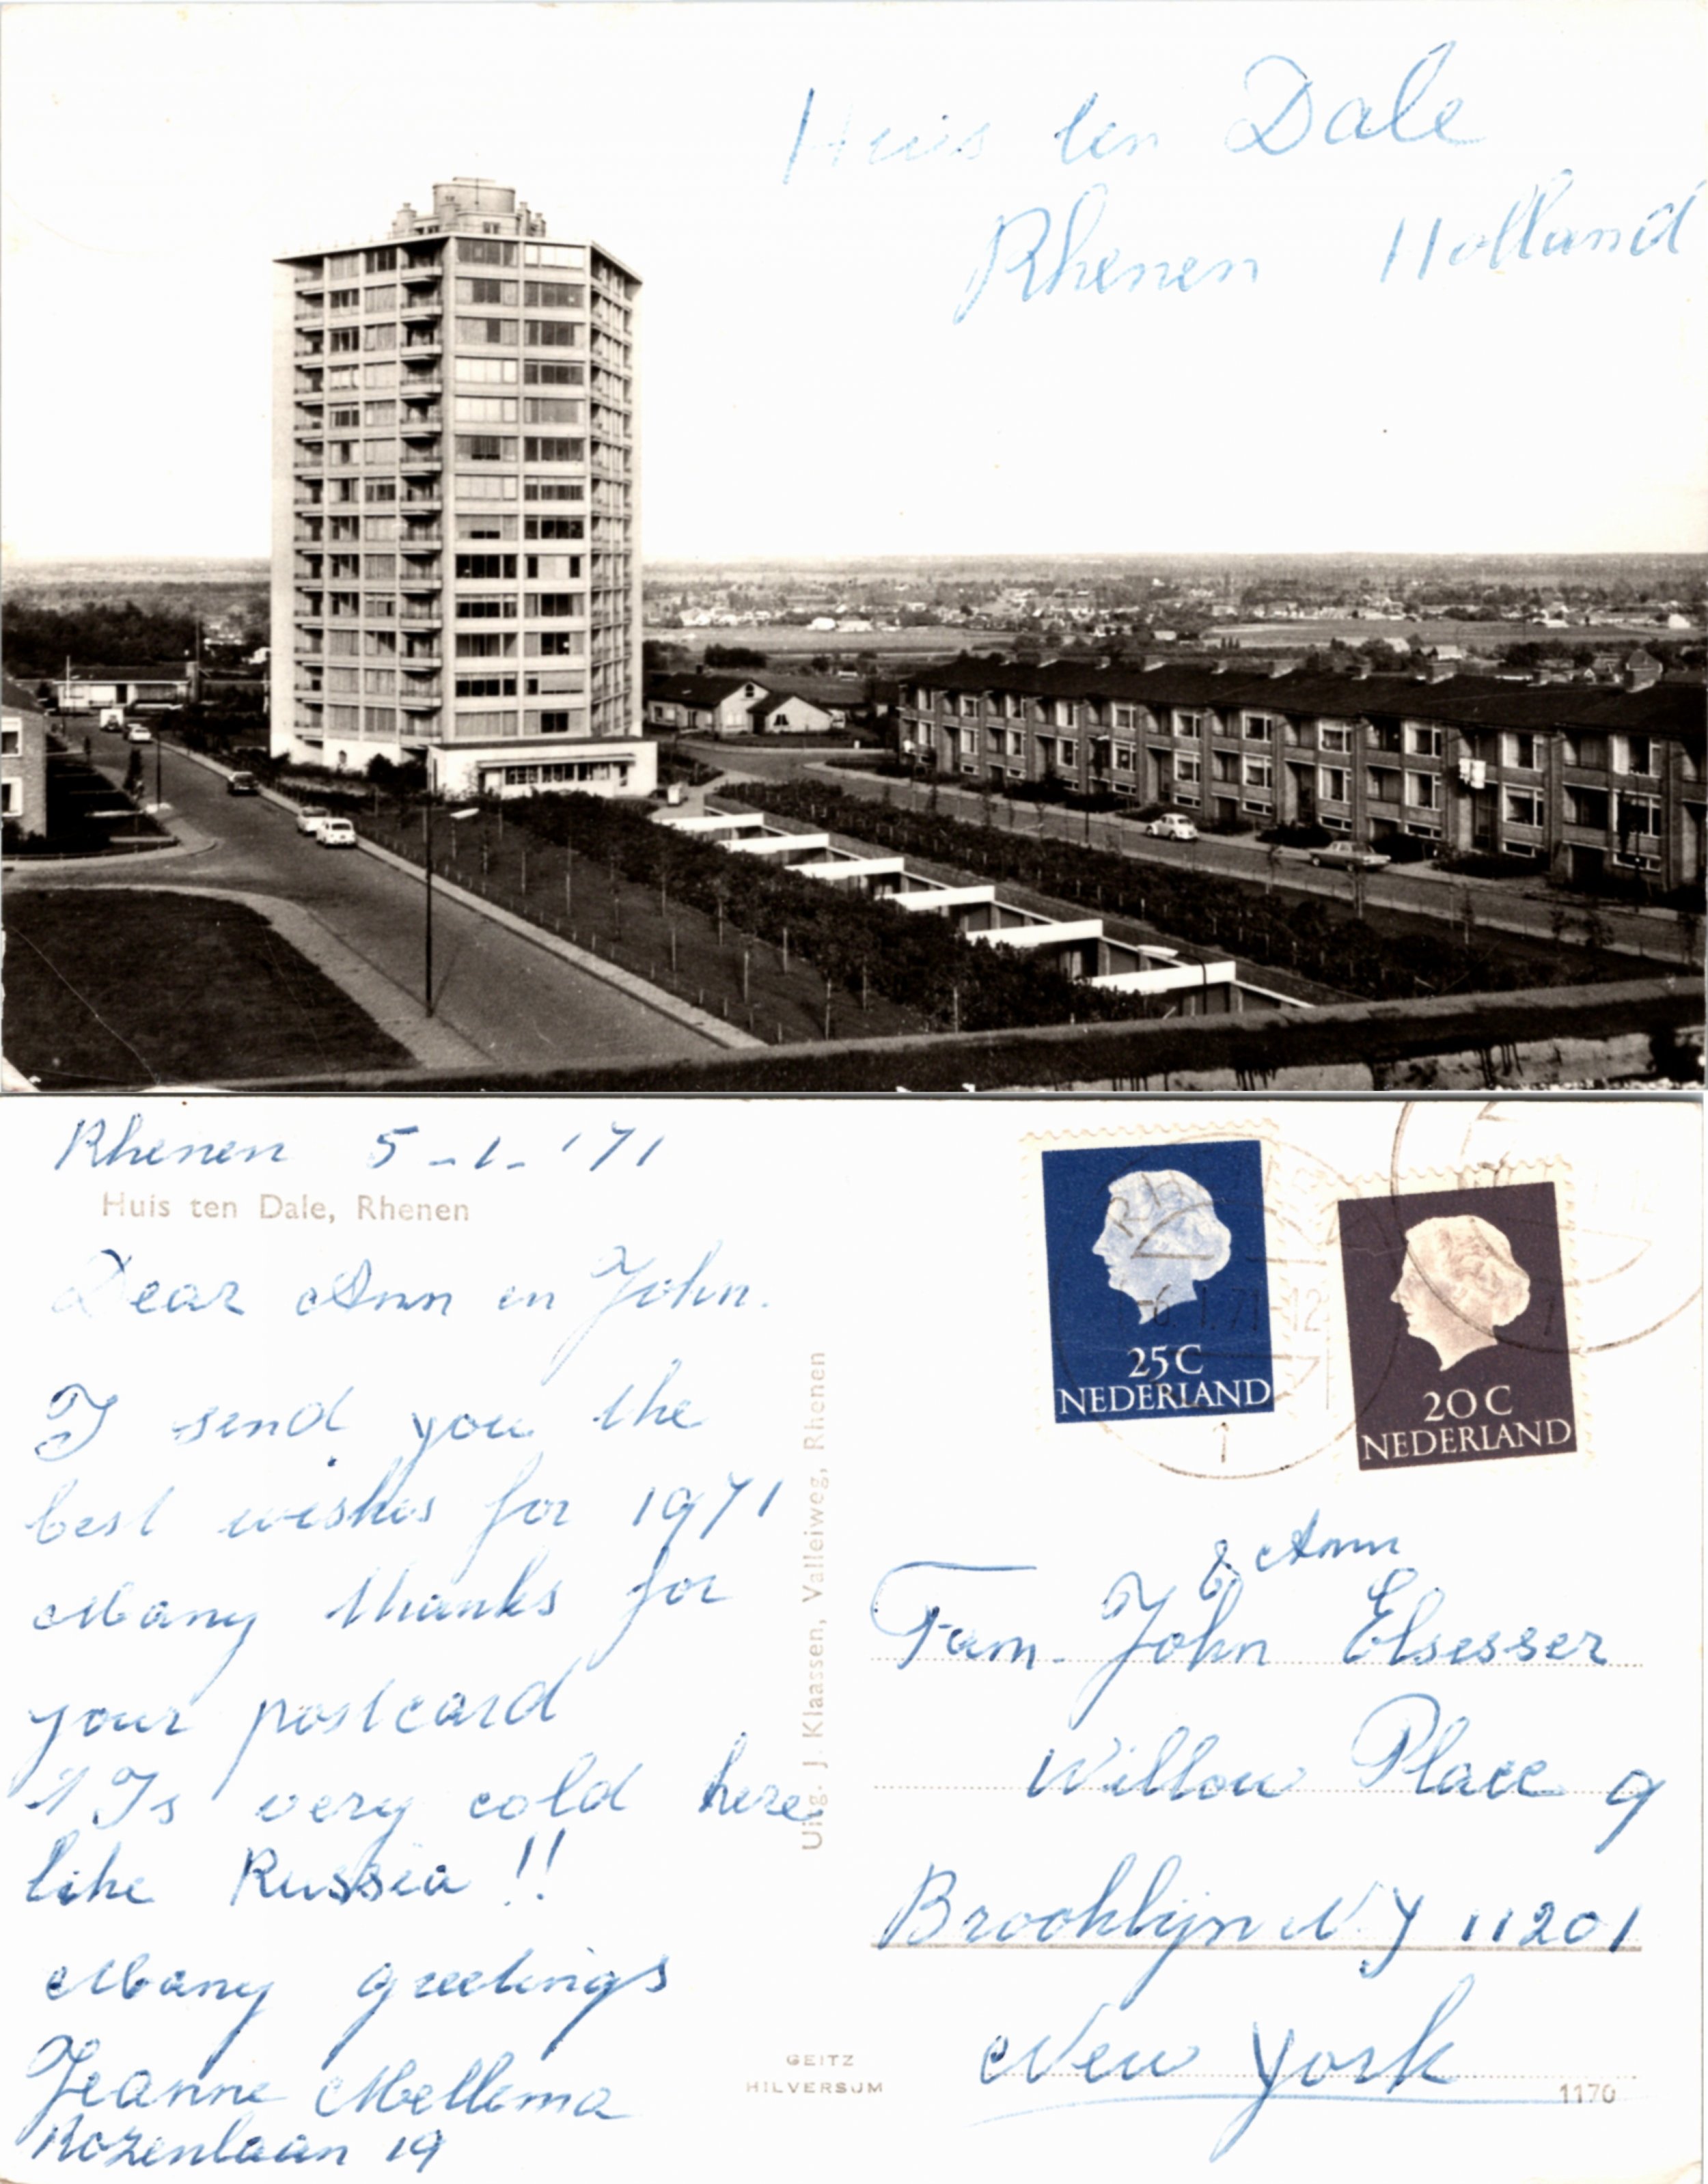 Huis ten Dale
Rhenen Holland
Rhenen 5-1-'71
Huis ten Dale, Rhenen
Dear Ann en John.
I send you the
best wishes for 1971
Many thanks for
your postcard
't Is very cold here
like Russia !!
Many greetings
Jeanne Mellema
Rozenlaan 19
Uitg. J. Klaassen, Valleiweg, Rhenen
GEITZ
HILVERSUM
25C
NEDERLAND
20C
NEDERLAND
-6.1.71-12
1
& Ann
Fam. John Elsesser
Willow Place 9
Brooklijn N.Y 11201
New York
1170